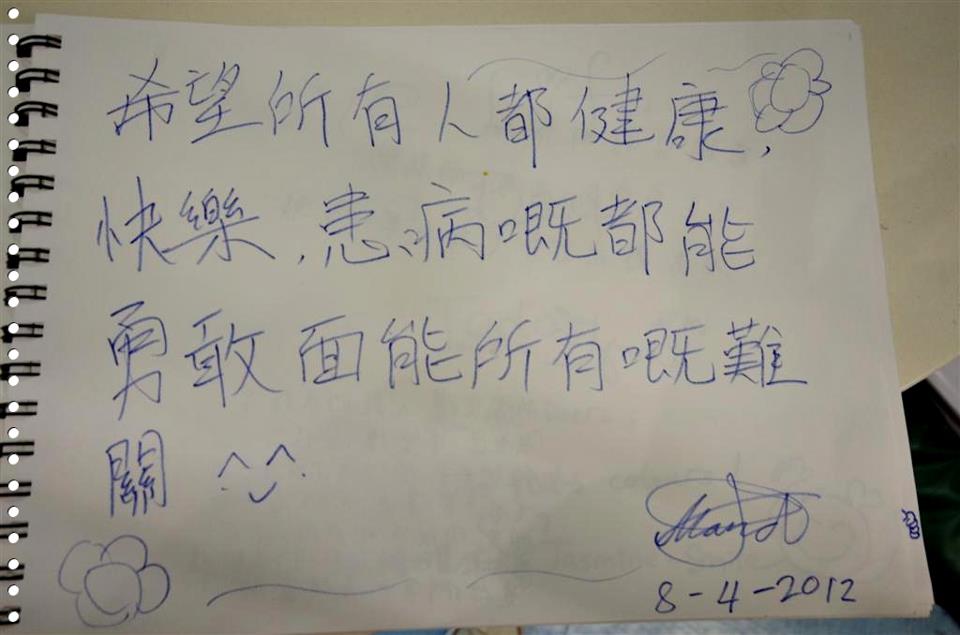 希望所有人都健康,
快樂,患病嘅都能
勇敢面能所有嘅難
關 ^◡^
8-4-2012